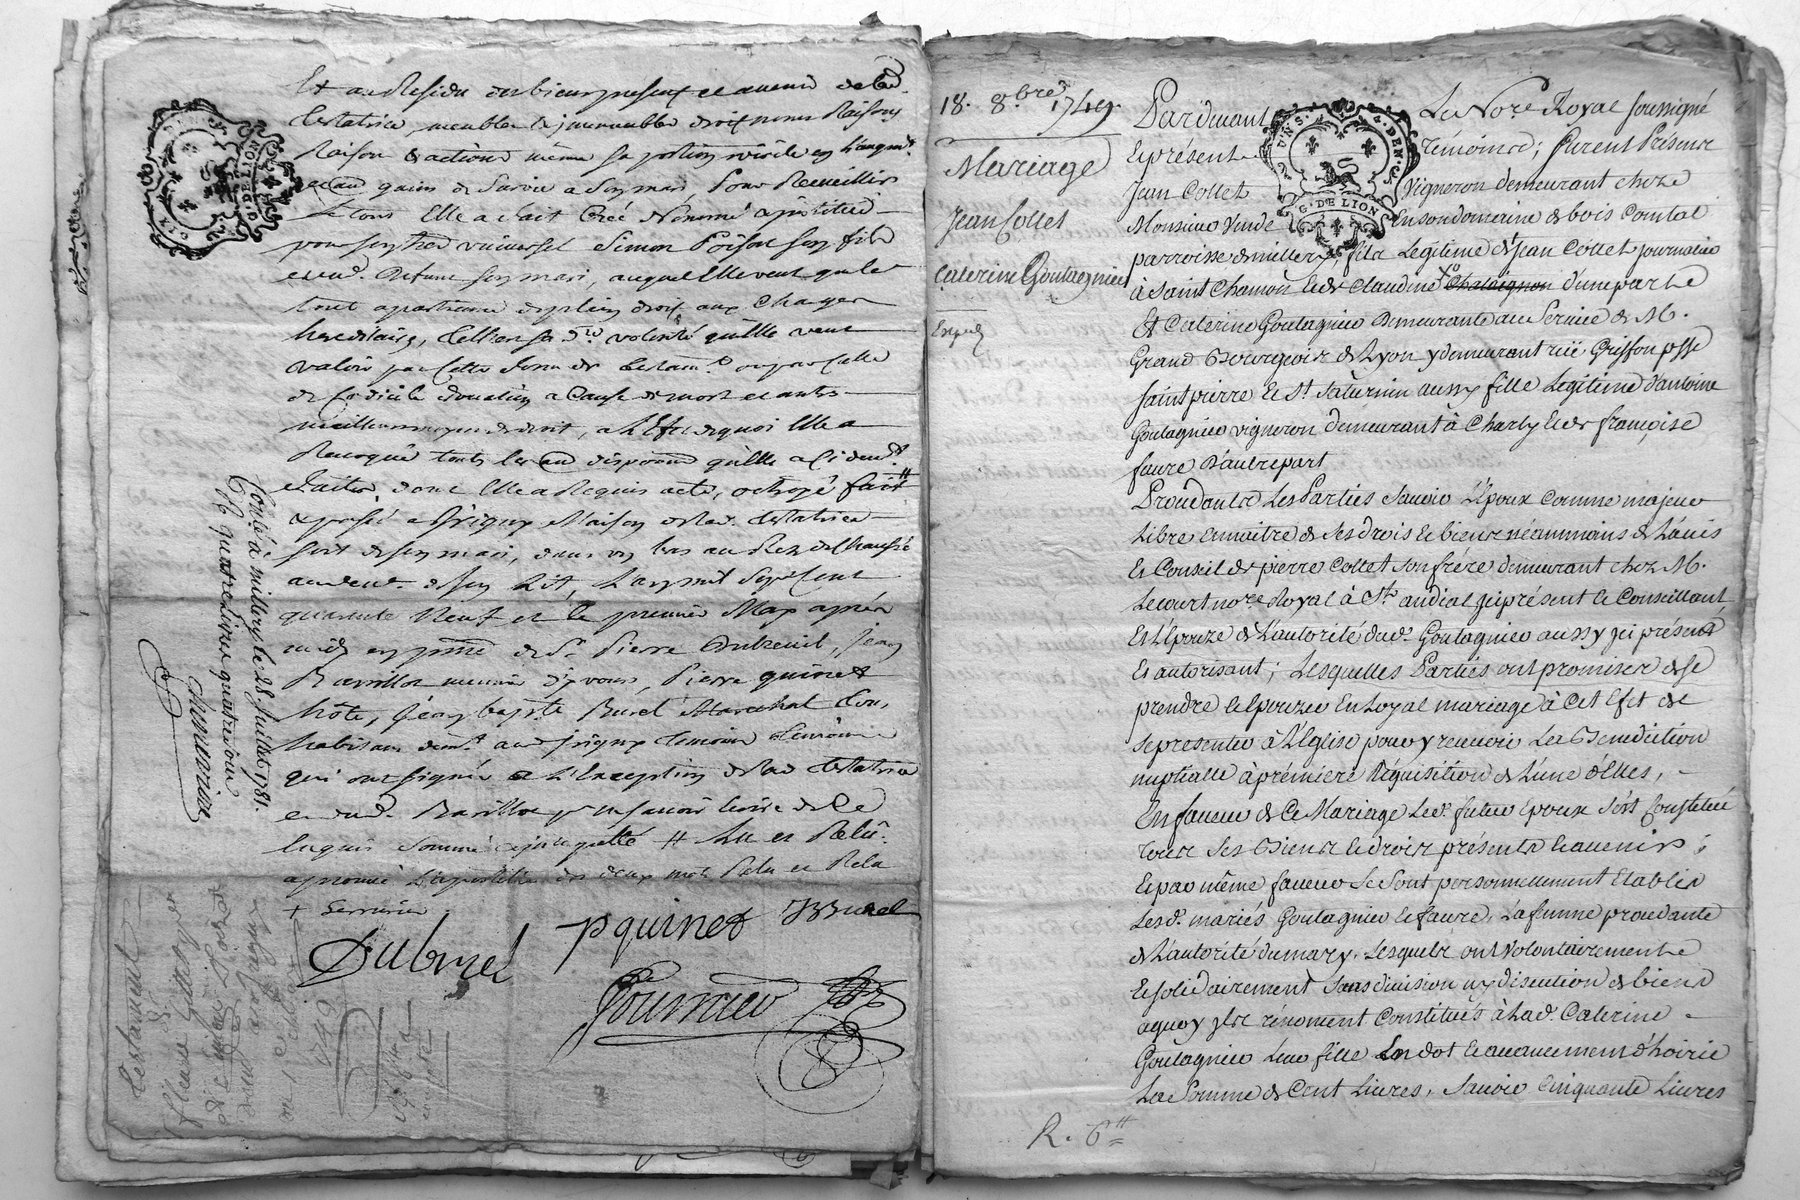 Et au Residu des biens presents et avenir de lad.
testatrice meubles & immeubles droits noms Raisons
Raison & actions même sa portion virile en l'augmt.
gains de Survie a Son mari, Pour Recueillir
le tout Elle a fait Créé & Nommé & institué
pour son her. universel Simon Poison son fils
et dud. defunt son mari, auquel Elle veut que le
tout apartienne de plein droit aux Charges
hereditaires, telle est sa dre. volonté qu'elle veut
valoir par cette forme de testamt. ou par celle
de Codicile donation a Cause de mort et autre
meilleur moyen de droit, a l'Effet de quoi Elle a
Revoqué toutes les dispositions qu'elle a ci devt.
faites, dont Elle a Requis acte, octroyé fait
& passé a Grigny Maison de lad. testatrice
soit de son mari, dans un bas au Rez de Chaussée
au devt. de son Lit, L'an mil Sept Cent
quarante Neuf et le premier May après
midy en presce. de Sr. Pierre Dubreuil, Jean
Barillot meunier d'yvours, Pierre quinet
hôte, Jean baptte. Burel Marechal tous
habitans demt. aud. Grigny temoins
qui ont signé a l'Exception de lad. testatrice
et dud. Barillot pr. ne savoir écrire de Ce
Enquis Sommé & interpellé # Lu et Relu
aprouvé L'apostille des deux mots Relu et Rela
+ Serrurier
Dubruel pquinet JBBurel
Fournier
Contlé. à millery le 28. Juillet 1781.
quatre livres quatre sous
Testament
1749
18. 8.bre 1749.
Mariage
Jean Collet
Caterine Goutagnieu
Exped.
Pardevant Le Nore. Royal soussigné
Et présents Témoins; furent Présents
Jean Collet Vigneron demeurant chez
Monsieur Vende En son domaine de bois Comtal
parroisse de millery, fils Legitime de Jean Collet journalier
à Saint Chamon Et de Claudine Chataignon d'une part
Et Caterine Goutagnieu Demeurante au Service de M.
Grand Bourgeois de Lyon y demeurant rüe Griffon psse
saint pierre Et St. saturnin aussy fille Legitime d'antoine
Goutagnieu vigneron demeurant à Charly Et de françoise
faure D'autre part
Procedants Les Parties Savoir L'époux comme majeur
Libre Et maitre de Ses droits Et biens néammoins de L'avis
Et Conseil de pierre Collet son frére demeurant chez M.
Lecourt nore. Royal à St. andiol icy présent Et Conseillant
Et L'épouze de L'autorité dud. Goutagnieu aussy icy présent
Et autorisant; Lesquelles Parties ont promises de se
prendre Et Epouzer En Loyal mariage à Cet Efet de
se presenter à L'Eglise pour y recevoir La Benediction
nuptialle à prémiere Réquisition de L'une d'Elles,
En faveur de Ce Mariage Led. futur époux s'est Constitué
Tous Ses Biens Et droits présents Et avenirs;
Et par même faveur Se Sont personnellement Etablis
Lesd. mariés Goutagnieu Et faure, La femme procedante
de L'autorité du mary. Lesquels ont Volontairement
Et solidairement Sans division ny discution de biens
a quoy ils renoncent Constitués à Lad. Caterine
Goutagnieu Leur fille En dot Et avancement d'hoirie
La Somme de Cent Livres, Savoir Cinquante Livres
R. 6tt